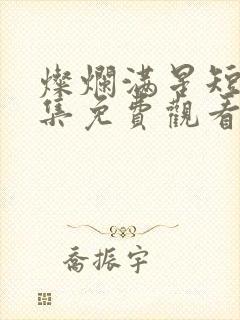 燦爛满星短
集免費觀看
喬振宇